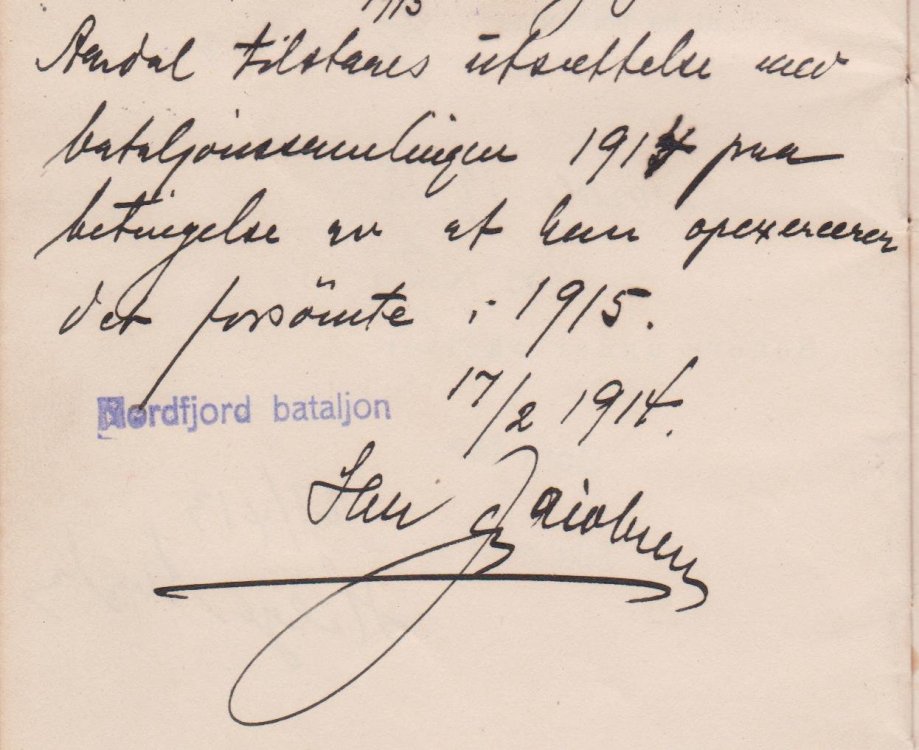 1913
Aardal tilstaaes utsættelse med
bataljonssamlingen 1914 paa
betingelse av at han opexercerer
det forsömte i 1915.
Nordfjord bataljon 17/2 1914.
Jacobsen